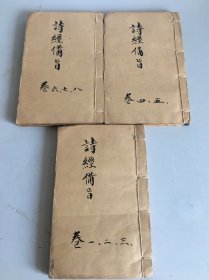 詩經備旨
卷六、七、八
詩經備旨
卷四、五、
詩經備旨
卷一、二、三、